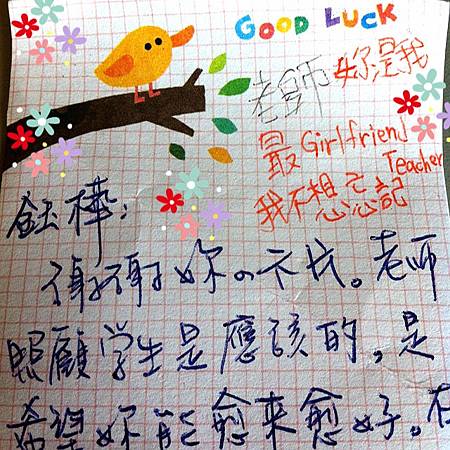 GOOD LUCK
老師 妳是我
最 Girlfriend
Teacher
我不想忘記
鈺樺:
謝謝妳の卡片。老师
照顧学生是應該的,是
希望妳能愈来愈好。在